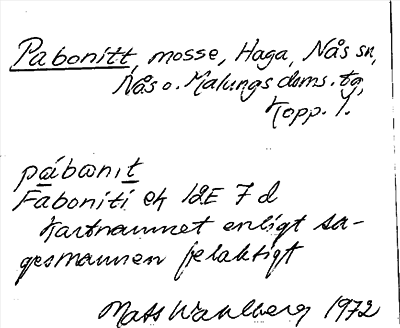 Pabonitt, mosse, Haga, Nås sn,
Nås o. Malungs doms. tg,
Kopp. l.
pábωnıt
Faboniti ek 12E 7 d
Kartnamnet enligt sa-
gesmannen felaktigt
Mats Wahlberg 1972